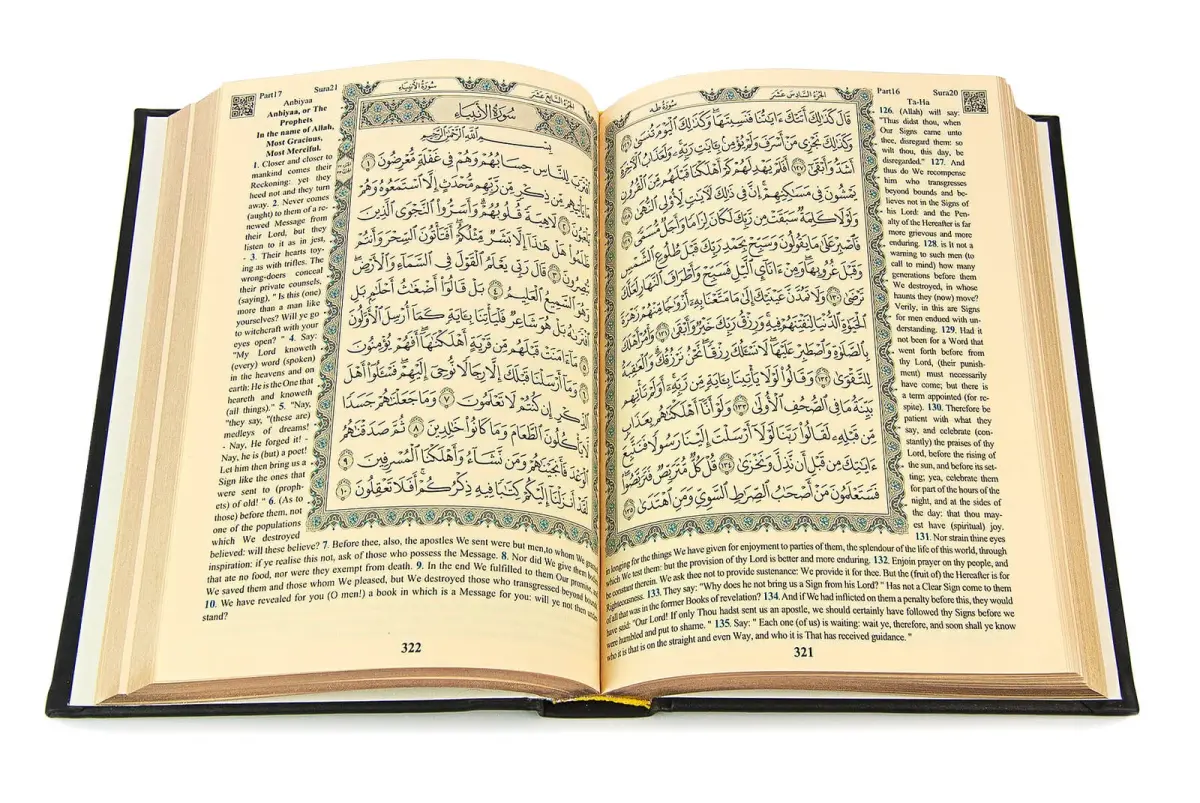 Part16 Sura20
الجزء السادس عشر سورة طه
قَالَ كَذَٰلِكَ أَتَتْكَ ءَايَٰتُنَا فَنَسِيتَهَا ۖ وَكَذَٰلِكَ ٱلْيَوْمَ تُنسَىٰ ١٢٦
وَكَذَٰلِكَ نَجْزِى مَنْ أَسْرَفَ وَلَمْ يُؤْمِنۢ بِـَٔايَٰتِ رَبِّهِۦ ۚ وَلَعَذَابُ ٱلْءَاخِرَةِ
أَشَدُّ وَأَبْقَىٰٓ ١٢٧ أَفَلَمْ يَهْدِ لَهُمْ كَمْ أَهْلَكْنَا قَبْلَهُم مِّنَ ٱلْقُرُونِ
يَمْشُونَ فِى مَسَٰكِنِهِمْ ۗ إِنَّ فِى ذَٰلِكَ لَءَايَٰتٍ لِّأُو۟لِى ٱلنُّهَىٰ ١٢٨
وَلَوْلَا كَلِمَةٌ سَبَقَتْ مِن رَّبِّكَ لَكَانَ لِزَامًا وَأَجَلٌ مُّسَمًّى ١٢٩
فَٱصْبِرْ عَلَىٰ مَا يَقُولُونَ وَسَبِّحْ بِحَمْدِ رَبِّكَ قَبْلَ طُلُوعِ ٱلشَّمْسِ
وَقَبْلَ غُرُوبِهَا ۖ وَمِنْ ءَانَآئِ ٱلَّيْلِ فَسَبِّحْ وَأَطْرَافَ ٱلنَّهَارِ لَعَلَّكَ
تَرْضَىٰ ١٣٠ وَلَا تَمُدَّنَّ عَيْنَيْكَ إِلَىٰ مَا مَتَّعْنَا بِهِۦٓ أَزْوَٰجًا مِّنْهُمْ زَهْرَةَ
ٱلْحَيَوٰةِ ٱلدُّنْيَا لِنَفْتِنَهُمْ فِيهِ ۚ وَرِزْقُ رَبِّكَ خَيْرٌ وَأَبْقَىٰ ١٣١ وَأْمُرْ أَهْلَكَ
بِٱلصَّلَوٰةِ وَٱصْطَبِرْ عَلَيْهَا ۖ لَا نَسْـَٔلُكَ رِزْقًا ۖ نَّحْنُ نَرْزُقُكَ ۗ وَٱلْعَٰقِبَةُ
لِلتَّقْوَىٰ ١٣٢ وَقَالُوا۟ لَوْلَا يَأْتِينَا بِـَٔايَةٍ مِّن رَّبِّهِۦٓ ۚ أَوَلَمْ تَأْتِهِم
بَيِّنَةُ مَا فِى ٱلصُّحُفِ ٱلْأُولَىٰ ١٣٣ وَلَوْ أَنَّآ أَهْلَكْنَٰهُم بِعَذَابٍ
مِّن قَبْلِهِۦ لَقَالُوا۟ رَبَّنَا لَوْلَآ أَرْسَلْتَ إِلَيْنَا رَسُولًا فَنَتَّبِعَ
ءَايَٰتِكَ مِن قَبْلِ أَن نَّذِلَّ وَنَخْزَىٰ ١٣٤ قُلْ كُلٌّ مُّتَرَبِّصٌ فَتَرَبَّصُوا۟ ۖ
فَسَتَعْلَمُونَ مَنْ أَصْحَٰبُ ٱلصِّرَٰطِ ٱلسَّوِىِّ وَمَنِ ٱهْتَدَىٰ ١٣٥
Ta-Ha
126. (Allah) will say:
"Thus didst thou, when
Our Signs came unto
thee, disregard them: so
wilt thou, this day, be
disregarded." 127. And
thus do We recompense
him who transgresses
beyond bounds and be-
lieves not in the Signs of
his Lord: and the Pen-
alty of the Hereafter is far
more grievous and more
enduring. 128. is it not a
warning to such men (to
call to mind) how many
generations before them
We destroyed, in whose
haunts they (now) move?
Verily, in this are Signs
for men endued with un-
derstanding. 129. Had it
not been for a Word that
went forth before from
thy Lord, (their punish-
ment) must necessarily
have come; but there is
a term appointed (for re-
spite). 130. Therefore be
patient with what they
say, and celebrate (con-
stantly) the praises of thy
Lord, before the rising of
the sun, and before its set-
ting; yea, celebrate them
for part of the hours of the
night, and at the sides of
the day: that thou may-
est have (spiritual) joy.
131. Nor strain thine eyes
in longing for the things We have given for enjoyment to parties of them, the splendour of the life of this world, through
which We test them: but the provision of thy Lord is better and more enduring. 132. Enjoin prayer on thy people, and
be constant therein. We ask thee not to provide sustenance: We provide it for thee. But the (fruit of) the Hereafter is for
Righteousness. 133. They say: "Why does he not bring us a Sign from his Lord? " Has not a Clear Sign come to them
of all that was in the former Books of revelation? 134. And if We had inflicted on them a penalty before this, they would
have said: "Our Lord! If only Thou hadst sent us an apostle, we should certainly have followed thy Signs before we
were humbled and put to shame. " 135. Say: " Each one (of us) is waiting: wait ye, therefore, and soon shall ye know
who it is that is on the straight and even Way, and who it is That has received guidance. "
321
Part17 Sura21
الجزء السابع عشر سورة الأنبياء
سُورَةُ الأَنبِيَاءِ
بِسْمِ ٱللَّهِ ٱلرَّحْمَٰنِ ٱلرَّحِيمِ
ٱقْتَرَبَ لِلنَّاسِ حِسَابُهُمْ وَهُمْ فِى غَفْلَةٍ مُّعْرِضُونَ ١
مَا يَأْتِيهِم مِّن ذِكْرٍ مِّن رَّبِّهِم مُّحْدَثٍ إِلَّا ٱسْتَمَعُوهُ وَهُمْ
يَلْعَبُونَ ٢ لَاهِيَةً قُلُوبُهُمْ ۗ وَأَسَرُّوا۟ ٱلنَّجْوَى ٱلَّذِينَ
ظَلَمُوا۟ هَلْ هَٰذَآ إِلَّا بَشَرٌ مِّثْلُكُمْ ۖ أَفَتَأْتُونَ ٱلسِّحْرَ وَأَنتُمْ
تُبْصِرُونَ ٣ قَالَ رَبِّى يَعْلَمُ ٱلْقَوْلَ فِى ٱلسَّمَآءِ وَٱلْأَرْضِ ۖ
وَهُوَ ٱلسَّمِيعُ ٱلْعَلِيمُ ٤ بَلْ قَالُوٓا۟ أَضْغَٰثُ أَحْلَٰمٍۭ بَلِ
ٱفْتَرَىٰهُ بَلْ هُوَ شَاعِرٌ فَلْيَأْتِنَا بِـَٔايَةٍ كَمَآ أُرْسِلَ ٱلْأَوَّلُونَ
٥ مَآ ءَامَنَتْ قَبْلَهُم مِّن قَرْيَةٍ أَهْلَكْنَٰهَآ ۖ أَفَهُمْ يُؤْمِنُونَ
٦ وَمَآ أَرْسَلْنَا قَبْلَكَ إِلَّا رِجَالًا نُّوحِىٓ إِلَيْهِمْ ۖ فَسْـَٔلُوٓا۟ أَهْلَ
ٱلذِّكْرِ إِن كُنتُمْ لَا تَعْلَمُونَ ٧ وَمَا جَعَلْنَٰهُمْ جَسَدًا
لَّا يَأْكُلُونَ ٱلطَّعَامَ وَمَا كَانُوا۟ خَٰلِدِينَ ٨ ثُمَّ صَدَقْنَٰهُمُ
ٱلْوَعْدَ فَأَنجَيْنَٰهُمْ وَمَن نَّشَآءُ وَأَهْلَكْنَا ٱلْمُسْرِفِينَ ٩
لَقَدْ أَنزَلْنَآ إِلَيْكُمْ كِتَٰبًا فِيهِ ذِكْرُكُمْ ۖ أَفَلَا تَعْقِلُونَ ١٠
Anbiyaa
Anhiyaa, or The
Prophets
In the name of Allah,
Most Gracious,
Most Merciful.
1. Closer and closer to
mankind comes their
Reckoning: yet they
heed not and they turn
away. 2. Never comes
(aught) to them of a re-
newed Message from
their Lord, but they
listen to it as in jest,
- 3. Their hearts toy-
ing as with trifles. The
wrong-doers conceal
their private counsels,
(saying), " Is this (one)
more than a man like
yourselves? Will ye go
to witchcraft with your
eyes open? " 4. Say:
"My Lord knoweth
(every) word (spoken)
in the heavens and on
earth: He is the One that
heareth and knoweth
(all things)." 5. "Nay,
"they say, "(these are)
medleys of dreams!
- Nay, He forged it! -
Nay, he is (but) a poet!
Let him then bring us a
Sign like the ones that
were sent to (proph-
ets) of old! " 6. (As to
those) before them, not
one of the populations
which We destroyed
believed: will these believe? 7. Before thee, also, the apostles We sent were but men,to whom We granted
inspiration: if ye realise this not, ask of those who possess the Message. 8. Nor did We give them bodies
that ate no food, nor were they exempt from death. 9. In the end We fulfilled to them Our promise, and
We saved them and those whom We pleased, but We destroyed those who transgressed beyond bounds.
10. We have revealed for you (O men!) a book in which is a Message for you: will ye not then under-
stand?
322